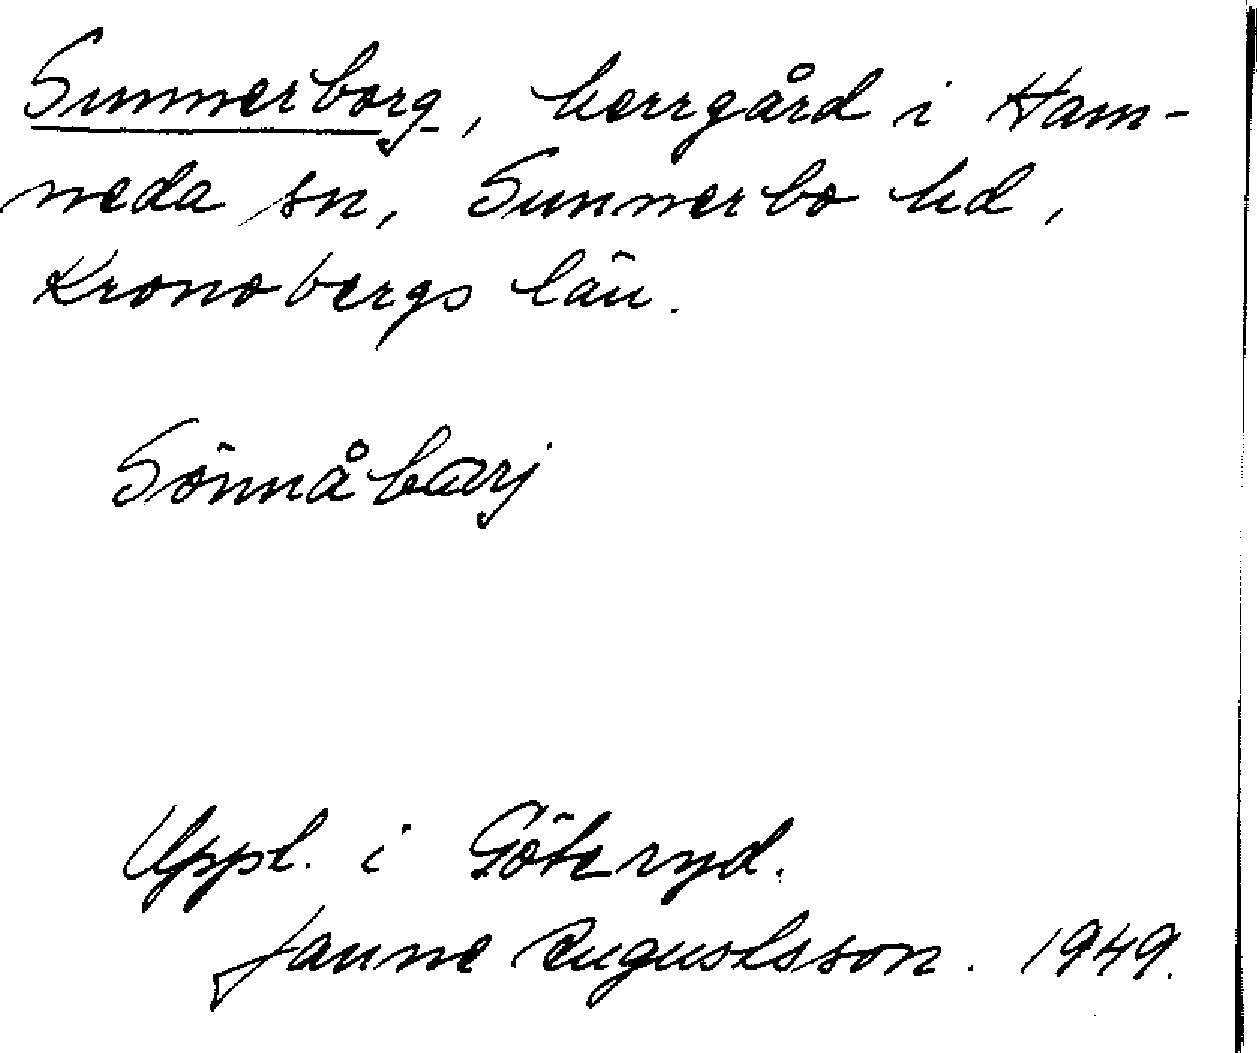 Sunnerborg, herrgård i Ham-
neda sn, Sunnerbo hd,
Kronobergs län.
Sönnåbårj
Uppl. i Göteryd.
Janne Augustsson. 1949.